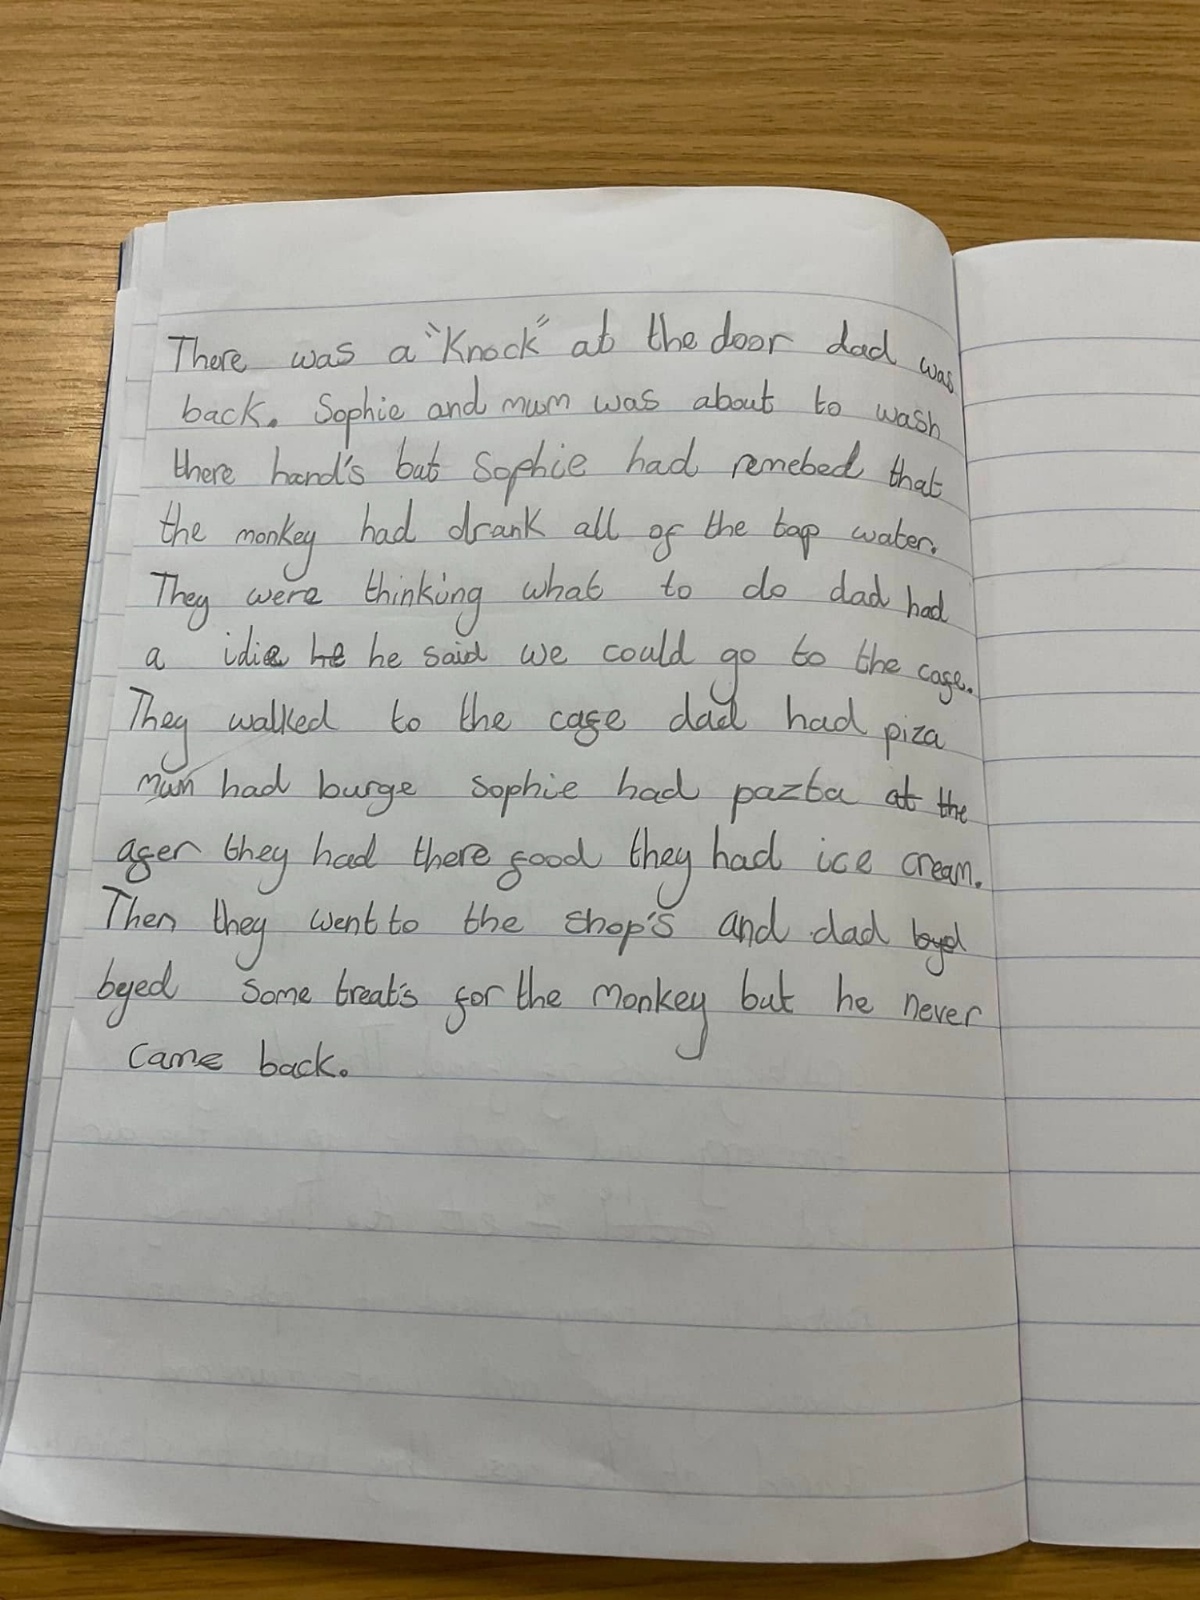 There was a "Knock" at the door dad was
back. Sophie and mum was about to wash
there hand's but Sophie had remebed that
the monkey had drank all of the tap water.
They were thinking what to do dad had
a idie he he said we could go to the cafe.
They walked to the cafe dad had piza
mum had burge Sophie had pazta at the
after they had there food they had ice cream.
Then they went to the shop's and dad byd
byed some treat's for the monkey but he never
came back.